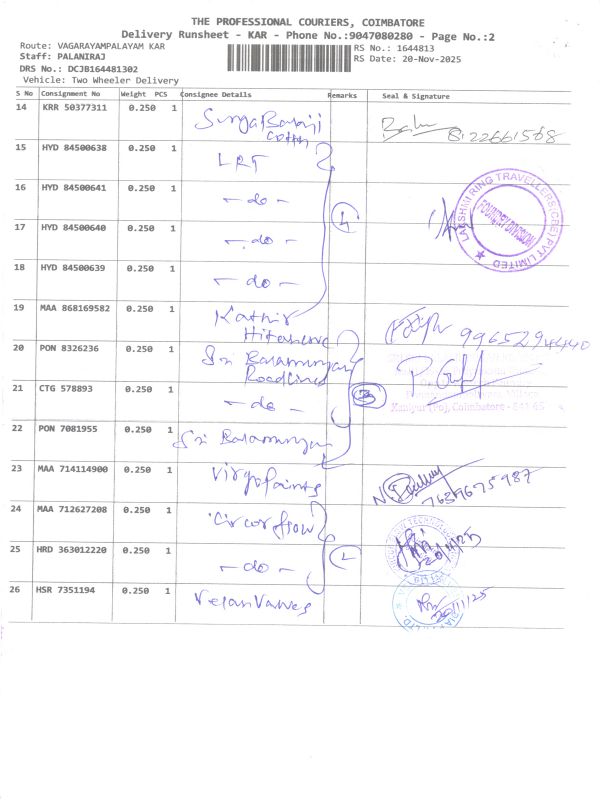 THE PROFESSIONAL COURIERS, COIMBATORE
Delivery Runsheet - KAR - Phone No.:9047080280 - Page No.:2
Route: VAGARAYAMPALAYAM KAR
RS No.: 1644813
Staff: PALANIRAJ
RS Date: 20-Nov-2025
DRS No.: DCJB164481302
Vehicle: Two Wheeler Delivery
S No Consignment No Weight PCS Consignee Details Remarks Seal & Signature
14 KRR 50377311 0.250 1 8122661568
15 HYD 84500638 0.250 1 LRT
16 HYD 84500641 0.250 1 - do -
LAKSHMI RING TRAVELLERS (CBE) PVT LIMITED
FOUNDRY DIVISION
17 HYD 84500640 0.250 1 - do - 4
18 HYD 84500639 0.250 1 - do -
19 MAA 868169582 0.250 1 Kathir 9965294440
20 PON 8326236 0.250 1 Sri Balamurugan
Roadlines
21 CTG 578893 0.250 1 - do - 3
Coimbatore
22 PON 7081955 0.250 1 Sri Balamurugan
23 MAA 714114900 0.250 1 Virgo Paints 7639675987
24 MAA 712627208 0.250 1 Circor flow 20/11/25
25 HRD 363012220 0.250 1 - do -
26 HSR 7351194 0.250 1 Velan Valves 20/11/25